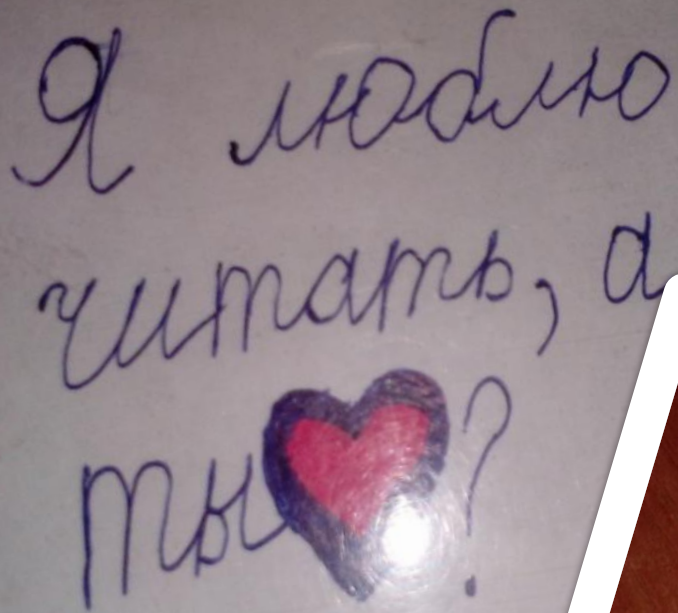 Я люблю
читать, а
ты?